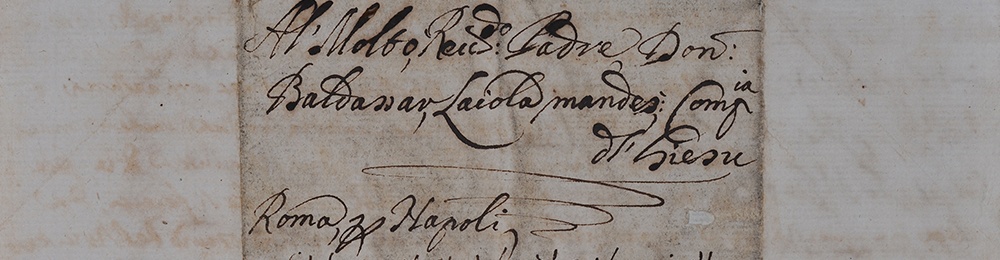 Al' Molto, Reu:do Padre, Don:
Baldassar, Laiola mandes; Compia
d'hiesu
Roma, p Napoli